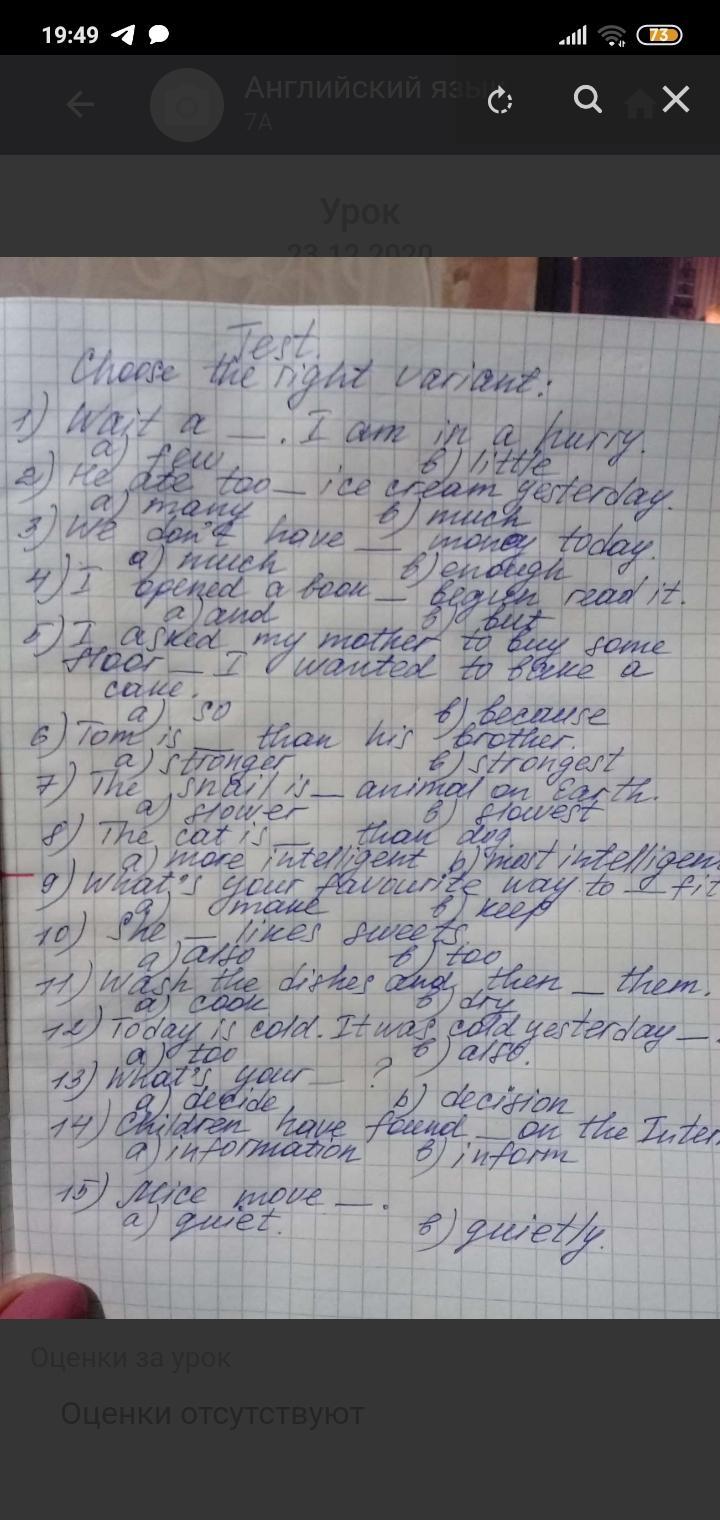 19:49
73
Английский язык
7А
Урок
23.12.2020
Test.
Choose the right variant:
1) Wait a __. I am in a hurry.
a) few в) little
2) He ate too __ ice cream yesterday.
a) many в) much
3) We don't have __ money today.
a) much в) enough
4) I opened a book __ begun read it.
a) and в) but
5) I asked my mother to buy some
floor __ I wanted to bake a
cake.
a) so в) because
6) Tom is __ than his brother.
a) stronger в) strongest
7) The snail is __ animal on Earth.
a) slower в) slowest
8) The cat is __ than dog.
a) more intelligent b) most intelligen
9) What's your favourite way to __ fit
a) make в) keep
10) She __ likes sweets.
a) also в) too
11) Wash the dishes and then __ them.
a) cook в) dry
12) Today is cold. It was cold yesterday __.
a) too в) also.
13) What's your __ ?
a) decide b) decision
14) Children have found __ on the Inter
a) information в) inform
15) Mice move __.
a) quiet. в) quietly.
Оценки за урок
Оценки отсутствуют